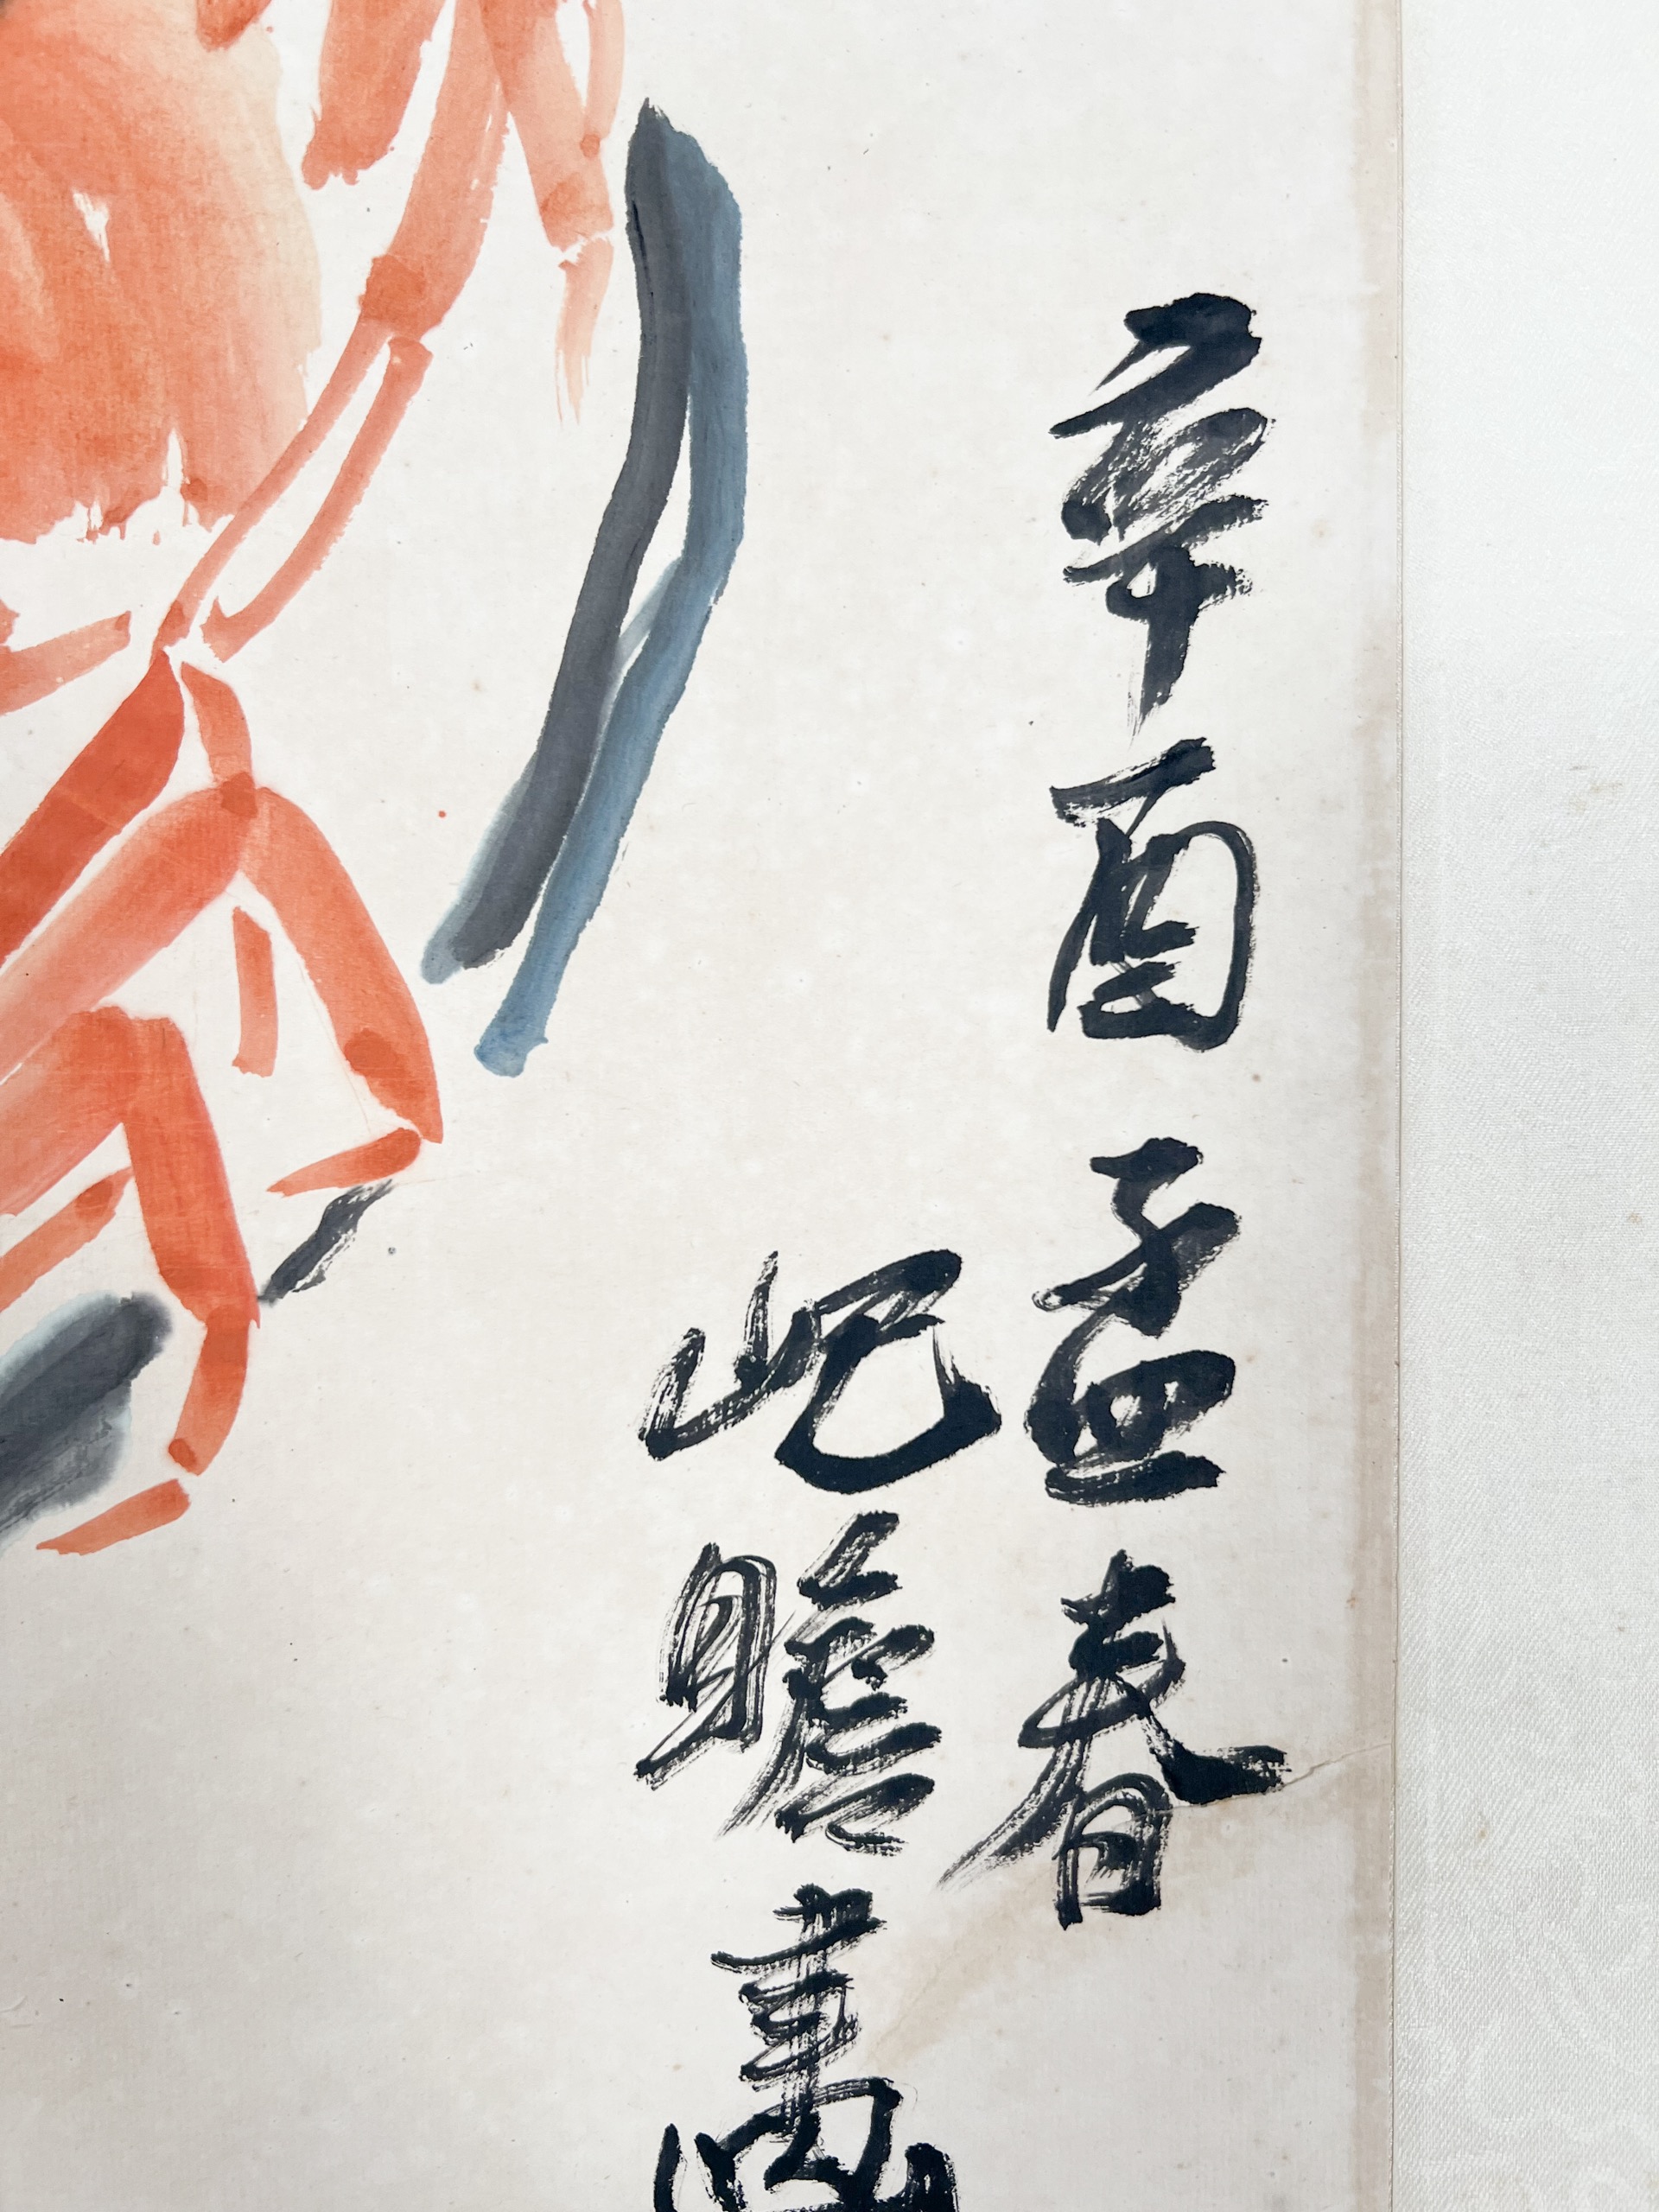 辛酉孟春
屺瞻畫